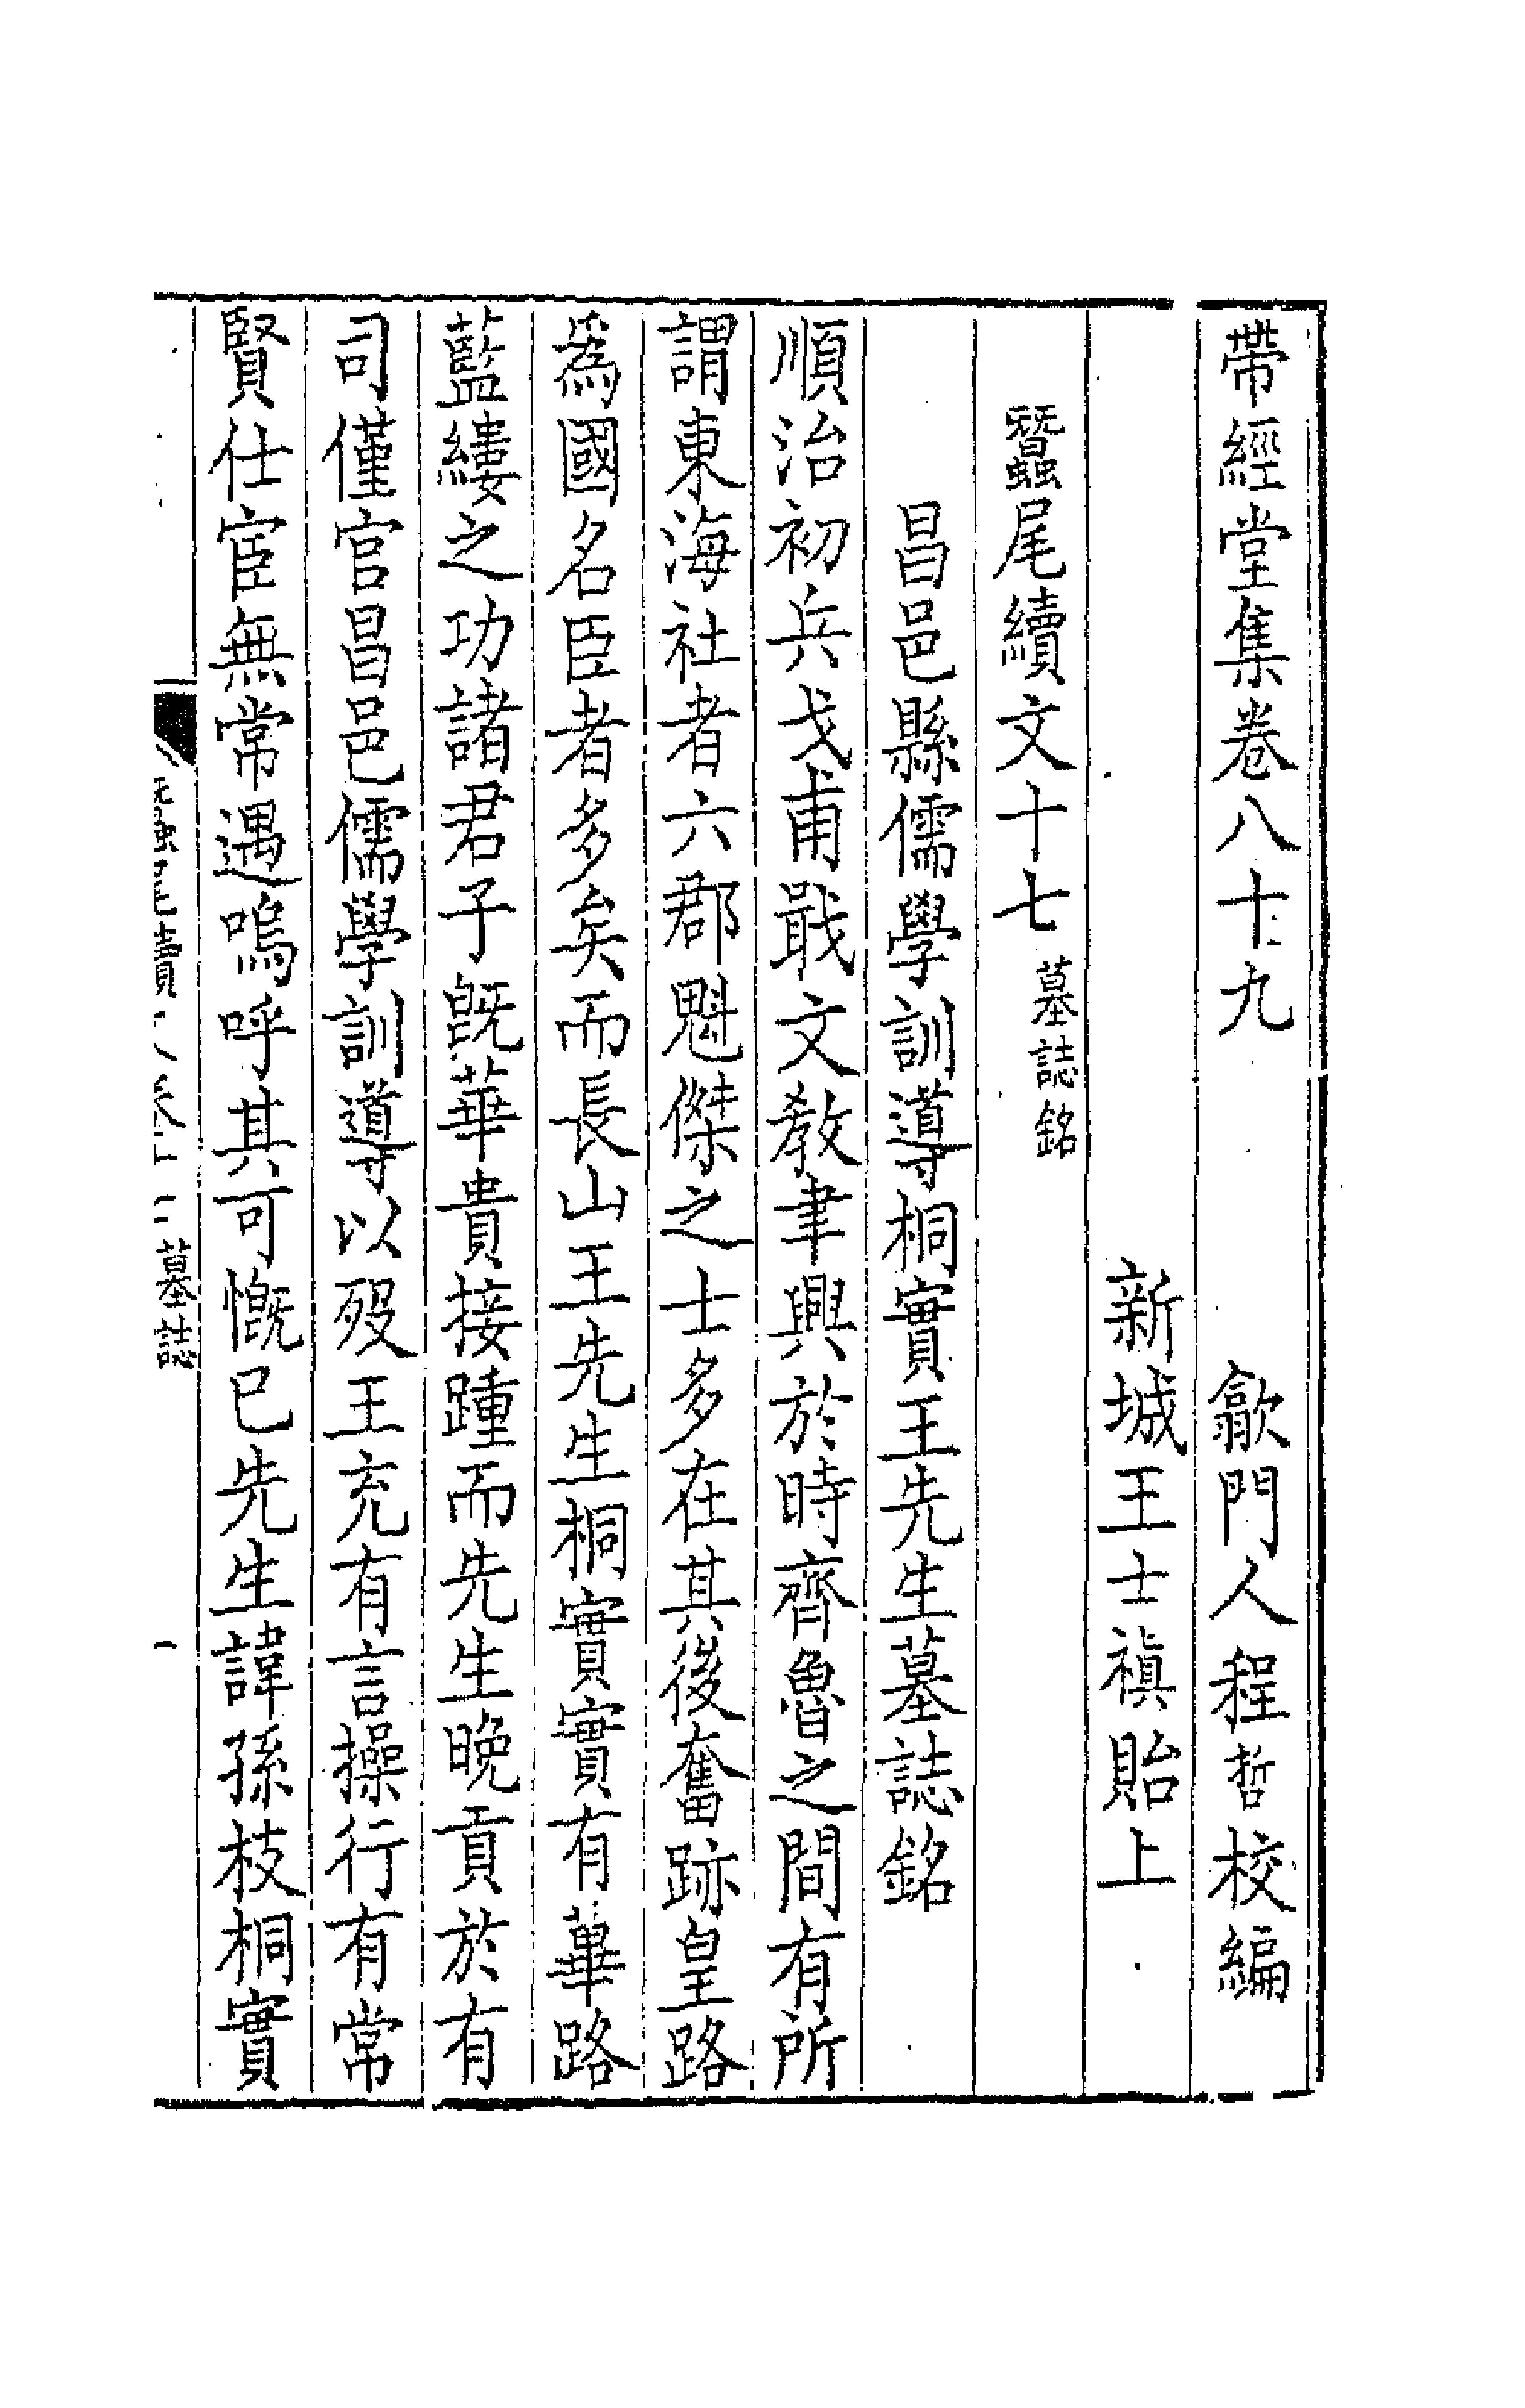 帶經堂集卷八十九　歙門人程哲校編
新城王士禛貽上
蠶尾續文十七　墓誌銘
昌邑縣儒學訓導桐實王先生墓誌銘
順治初兵戈甫戢文教聿興於時齊魯之間有所
謂東海社者六郡魁傑之士多在其後奮跡皇路
為國名臣者多矣而長山王先生桐實實有蓽路
藍縷之功諸君子旣華貴接踵而先生晩貢於有
司僅官昌邑儒學訓導以歿王充有言操行有常
賢仕宦無常遇嗚呼其可慨已先生諱孫枝桐實
蠶尾續　墓誌　一